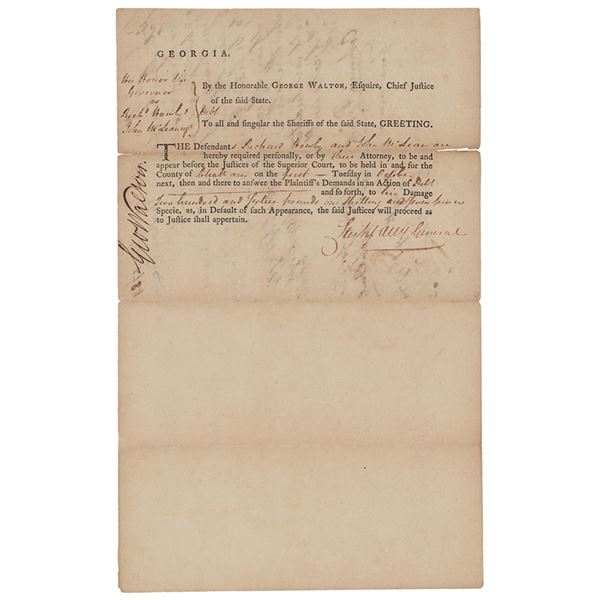 GEORGIA.
His Honor the
Governor
vs
Richd Howly &
John McLean
Debt
By the Honorable GEORGE WALTON, Esquire, Chief Justice
of the said State.
To all and singular the Sheriffs of the said State, GREETING.
THE Defendants Richard Howly and John McLean are
hereby required personally, or by their Attorney, to be and
appear before the Justices of the Superior Court, to be held in and for the
County of Chatham on the first Tuesday in October
next, then and there to answer the Plaintiff's Demands in an Action of Debt
and so forth, to his Damage
two hundred and pounds one shilling and seven pence
Specie, as, in Default of such Appearance, the said Justices will proceed as
to Justice shall appertain.
Atty General
Geo Walton.